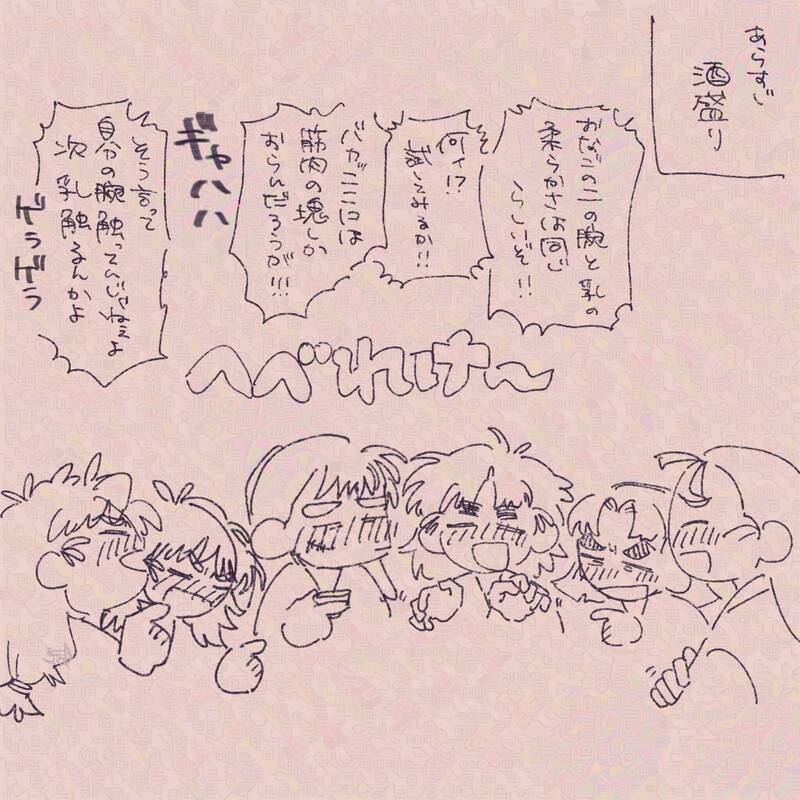 あらすじ
酒盛り
おなごの二の腕と乳の
柔らかさは同じ
らしいぞ!!
何ィ!?
試してみるか!!
バカッここには
筋肉の塊しか
おらんだろうが!!!
ギャハハハ
そう言って
自分の腕触ってんじゃねぇよ
次 乳触るんかよ
へべれけ〜